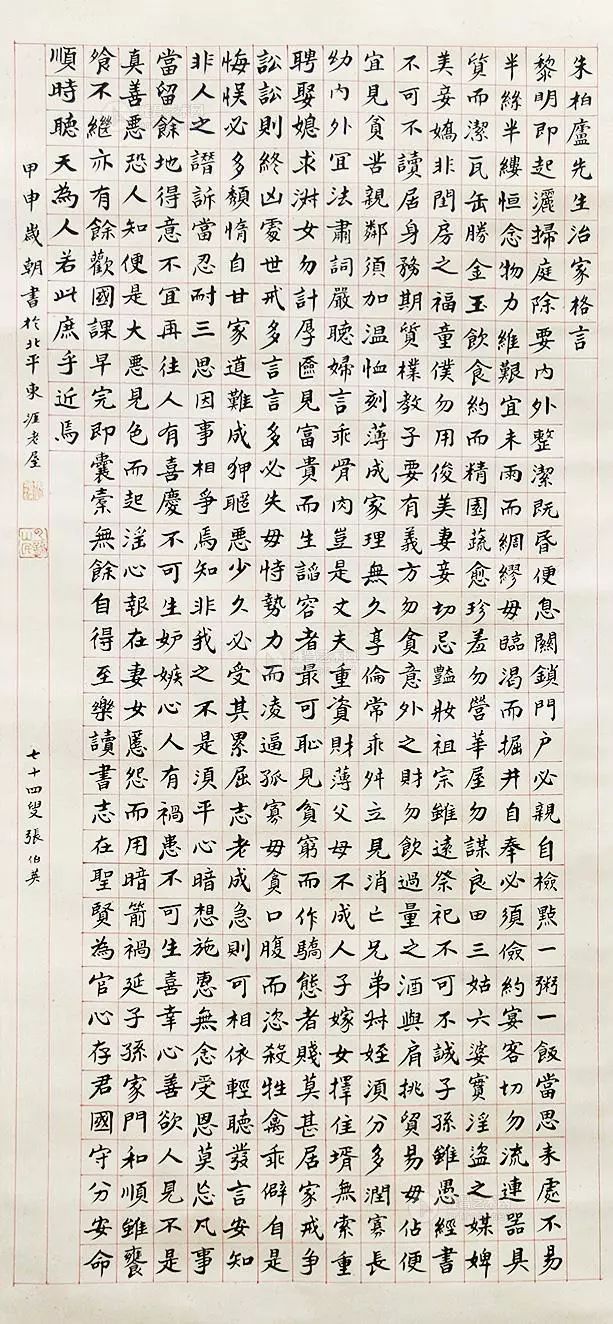 朱柏廬先生治家格言
黎明即起灑掃庭除要內外整潔既昏便息關鎖門戶必親自檢點一粥一飯當思來處不易
半絲半縷恒念物力維艱宜未雨而綢繆毋臨渴而掘井自奉必須儉約宴客切勿流連器具
質而潔瓦缶勝金玉飲食約而精園蔬愈珍羞勿營華屋勿謀良田三姑六婆實淫盜之媒婢
美妾嬌非閨房之福童僕勿用俊美妻妾切忌豔妝祖宗雖遠祭祀不可不誠子孫雖愚經書
不可不讀居身務期質樸教子要有義方勿貪意外之財勿飲過量之酒與肩挑貿易毋佔便
宜見貧苦親鄰須加溫恤刻薄成家理無久享倫常乖舛立見消亡兄弟叔姪須分多潤寡長
幼內外宜法肅詞嚴聽婦言乖骨肉豈是丈夫重資財薄父母不成人子嫁女擇佳壻無索重
聘娶媳求淑女勿計厚奩見富貴而生諂容者最可恥見貧窮而作驕態者賤莫甚居家戒爭
訟訟則終凶處世戒多言言多必失毋恃勢力而凌逼孤寡毋貪口腹而恣殺牲禽乖僻自是
悔悞必多頹惰自甘家道難成狎暱惡少久必受其累屈志老成急則可相依輕聽發言安知
非人之譖訴當忍耐三思因事相爭焉知非我之不是須平心暗想施惠無念受恩莫忘凡事
當留餘地得意不宜再往人有喜慶不可生妒嫉心人有禍患不可生喜幸心善欲人見不是
真善惡恐人知便是大惡見色而起淫心報在妻女慝怨而用暗箭禍延子孫家門和順雖饔
飧不繼亦有餘歡國課早完即囊橐無餘自得至樂讀書志在聖賢為官心存君國守分安命
順時聽天為人若此庶乎近焉
甲申歲朝書於北平東涯老屋
七十四叟張伯英